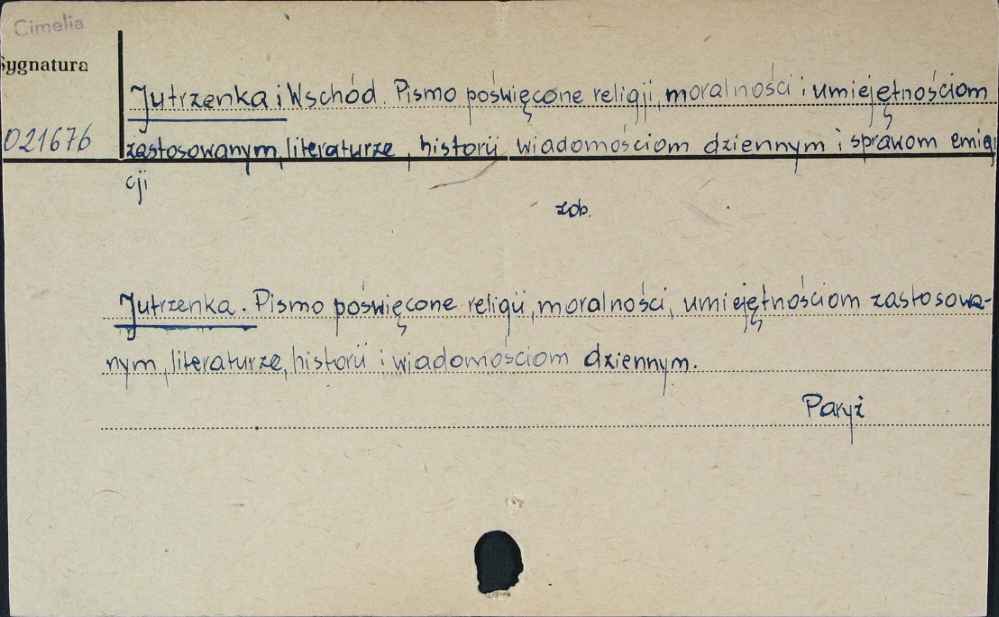 Cimelia
Sygnatura
Jutrzenka i Wschód. Pismo poświęcone religji, moralności i umiejętnościom
021676
zastosowanym, literaturze, historii wiadomościom dziennym i sprawom emigra
cji
zob.
Jutrzenka. Pismo poświęcone religii, moralności, umiejętnościom zastosowa-
nym, literaturze, historii i wiadomościom dziennym.
Paryż